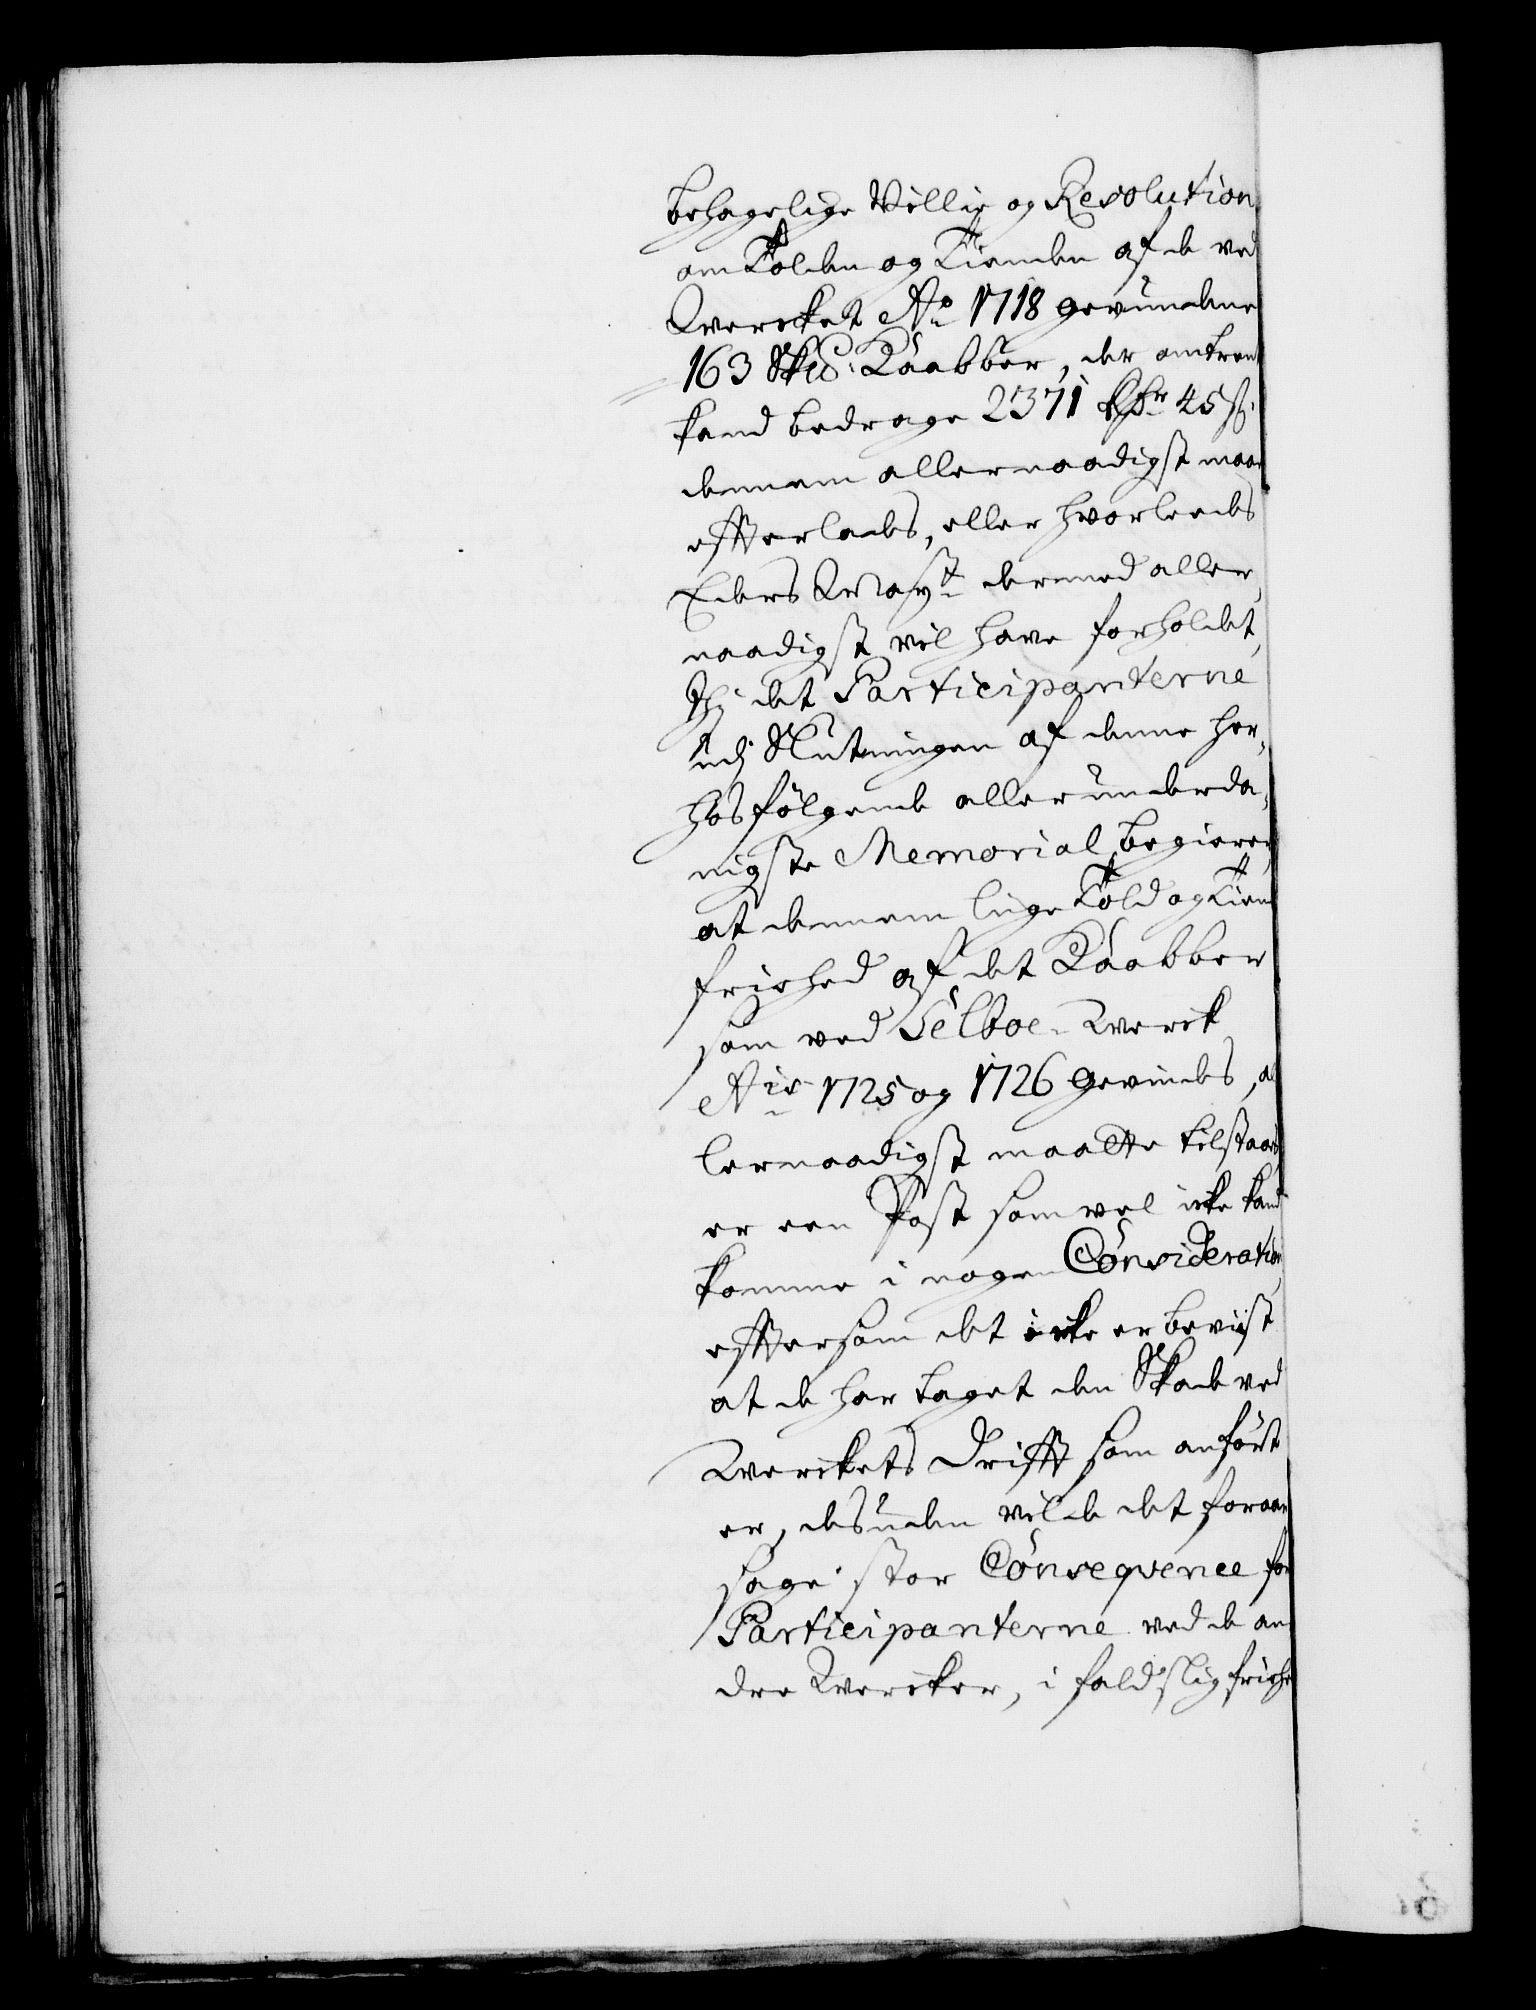 behagelige Villie og Resolution
om Tolden og Tienden af de ved
Wercket Ao 1718 gevundene
163 Sk℔: Kaabber, der omtrent
kand bedrage 2371 Rdr 45 ß.
dennem allernaadigst maae
efterlades, eller hvorleedes
Eders K Mayst dermed aller,
naadigst vil have forholdet,
Thi det Participanterne
udj Slutningen af denne her,
hos følgende allerunderda,
nigste Memorial begierer,
at dennem liige Told og Tiende
friehed af det Kaabber
som ved Selboe-Werck
Ais 1725 og 1726 gevindes, al
lernaadigst maatte tilstaaes,
er een Post som vel icke kand
komme i nogen Consideration,
eftersom det icke er beviist
at de har taget den Skade ved
Werckets Drift som anført
er, desuden vilde det foraar
sage stor Conseqvence for
Participanterne ved de an
dre Wercker, i fald slig friehed